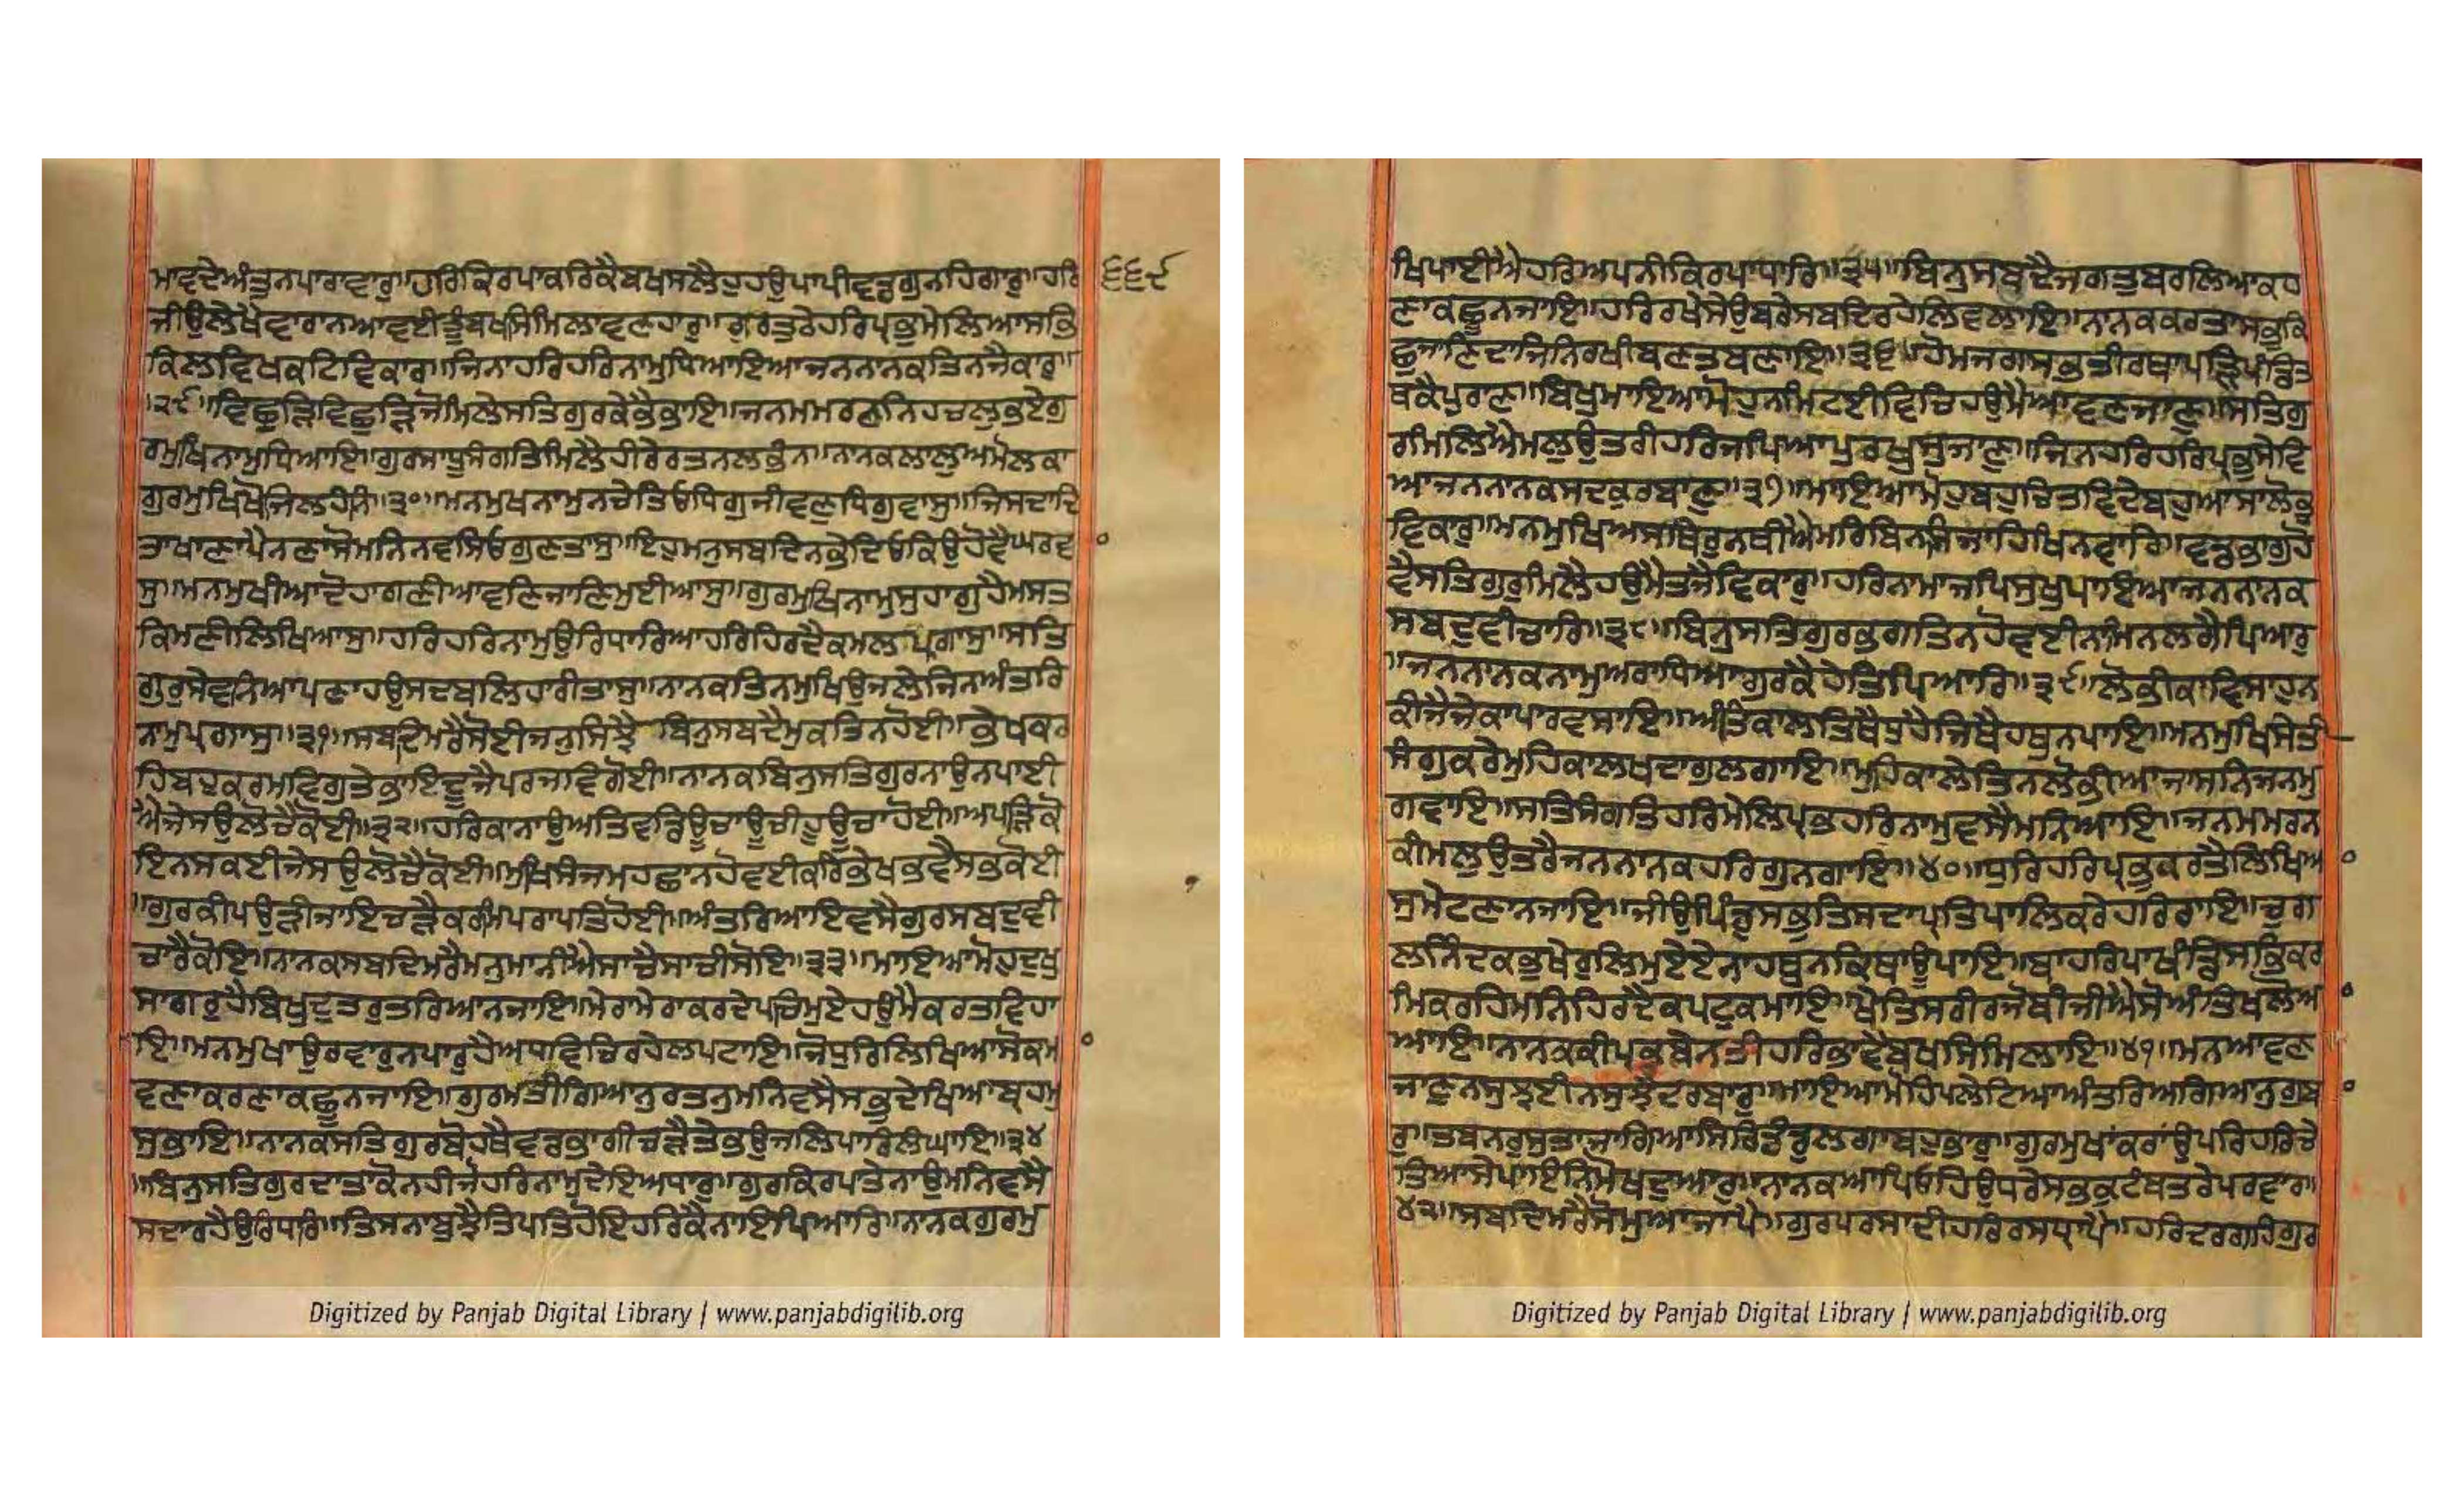 ਮਾਵਦੇਅੰਤੁਨਪਾਰਾਵਾਰੁ॥ਹਰਿਕਿਰਪਾਕਰਿਕੈਬਖਸਲੈਹੁਹਉਪਾਪੀਵਡਗੁਨਹਿਗਾਰੁ॥ਹਰਿ ੬੬੯
ਜੀਉਲੇਖੈਵਾਰਾਨਆਵਈਤੂੰਬਖਸਿਮਿਲਾਵਣਹਾਰੁ॥ਗੁਰਤੁਠੈਹਰਿਪ੍ਰਭੁਮੇਲਿਆਸਭਿ
ਕਿਲਵਿਖਕਟਿਵਿਕਾਰ॥ਜਿਨਾਹਰਿਹਰਿਨਾਮੁਧਿਆਇਆਜਨਨਾਨਕਤਿਨਜੈਕਾਰੁ॥
।੨੯॥ਵਿਛੁੜਿਵਿਛੁੜਿਜੋਮਿਲੇਸਤਿਗੁਰਕੇਭੈਭਾਇ॥ਜਨਮਮਰਣਨਿਹਚਲੁਭਏਗੁ
ਰਮੁਖਿਨਾਮੁਧਿਆਇ॥ਗੁਰਸਾਧੂਸੰਗਤਿਮਿਲੈਹੀਰੇਰਤਨਲਭੰਨਾ॥ਨਾਨਕਲਾਲੁਅਮੋਲਕਾ
ਗੁਰਮੁਖਿਖੋਜਿਲਹੰਨਿ॥੩੦॥ਮਨਮੁਖਨਾਮੁਨਚੇਤਿਓਧਿਗੁਜੀਵਣੁਧਿਗੁਵਾਸੁ॥ਜਿਸਦਾਦਿ
ਤਾਖਾਣਾਪੈਨਣਾਸੋਮਨਿਨਵਸਿਓਗੁਣਤਾਸੁ॥ਇਹੁਮਨੁਸਬਦਿਨਭੇਦਿਓਕਿਉਹੋਵੈਘਰਵਾ
ਸੁ॥ਮਨਮੁਖੀਆਦੋਹਾਗਣੀਆਵਣਿਜਾਣਿਮੁਈਆਸੁ॥ਗੁਰਮੁਖਿਨਾਮੁਸੁਹਾਗੁਹੈਮਸਤ
ਕਿਮਣੀਲਿਖਿਆਸੁ॥ਹਰਿਹਰਿਨਾਮੁਉਰਿਧਾਰਿਆਹਰਿਹਿਰਦੈਕਮਲਪ੍ਰਗਾਸੁ॥ਸਤਿ
ਗੁਰੁਸੇਵਨਿਆਪਣਾਹਉਸਦਬਲਿਹਾਰੀਤਾਸੁ॥ਨਾਨਕਤਿਨਮੁਖਉਜਲੇਜਿਨਾਅੰਤਰਿ
ਨਾਮੁਪ੍ਰਗਾਸੁ॥੩੧॥ਸਬਦਿਮਰੈਸੋਈਜਨੁਸਿਝੈ ਬਿਨੁਸਬਦੈਮੁਕਤਿਨਹੋਈ॥ਭੇਖਕਰ
ਹਿਬਹੁਕਰਮਵਿਗੁਤੇਭਾਇਦੂਜੈਪਰਜਵਿਗੋਈ॥ਨਾਨਕਬਿਨੁਸਤਿਗੁਰਨਾਉਨਪਾਈ
ਐਜੇਸਉਲੋਚੈਕੋਈ॥੩੨॥ਹਰਿਕਾਨਾਉਅਤਿਵਡਊਚਾਊਚੀਹੂਊਚਾਹੋਈ॥ਅਪੜਿਕੋ
ਇਨਸਕਈਜੇਸਉਲੋਚੈਕੋਈ॥ਮੁਖਿਸੰਜਮਹਛਾਨਹੋਵਈਕਰਿਭੇਖਭਵੈਸਭਕੋਈ
॥ਗੁਰਕੀਪਉੜੀਜਾਇਚੜੈਕਰਮਿਪਰਾਪਤਿਹੋਈ॥ਅੰਤਰਿਆਇਵਸੈਗੁਰਸਬਦੁਵੀ
ਚਾਰੈਕੋਇ॥ਨਾਨਕਸਬਦਿਮਰੈਮਨੁਮਾਨੀਐਸਾਚੈਸਾਚੀਸੋਇ॥੩੩॥ਮਾਇਆਮੋਹੁਦੁਖੁ
ਸਾਗਰੁਹੈਬਿਖੁਦੁਤਰੁਤਰਿਆਨਜਾਇ॥ਮੇਰਾਮੇਰਾਕਰਦੇਪਚਿਮੁਏਹਉਮੈਕਰਤਵਿਹਾ
ਇ॥ਮਨਮੁਖਾਉਰਵਾਰੁਨਪਾਰੁਹੈਅਧਵਿਚਿਰਹੇਲਪਟਾਇ॥ਜੋਧੁਰਿਲਿਖਿਆਸੋਕਮਾ
ਵਣਾਕਰਣਾਕਛੂਨਜਾਇ॥ਗੁਰਮਤੀਗਿਆਨੁਰਤਨੁਮਨਿਵਸੈਸਭੁਦੇਖਿਆਬ੍ਰਹਮੁ
ਸੁਭਾਇ॥ਨਾਨਕਸਤਿਗੁਰਬੋਹਥੈਵਡਭਾਗੀਚੜੈਤੇਭਉਜਲਿਪਾਰਿਲੰਘਾਇ॥੩੪
॥ਬਿਨੁਸਤਿਗੁਰਦਾਤਾਕੋਨਹੀਜੋਹਰਿਨਾਮੁਦੇਇਅਧਾਰੁ॥ਗੁਰਕਿਰਪਾਤੇਨਾਉਮਨਿਵਸੈ
ਸਦਾਰਹੈਉਰਿਧਾਰਿ॥ਤਿਸਨਾਬੁਝੈਤਿਪਤਿਹੋਇਹਰਿਕੈਨਾਇਪਿਆਰਿ॥ਨਾਨਕਗੁਰਮੁ
ਖਿਪਾਈਐਹਰਿਅਪਨੀਕਿਰਪਾਧਾਰਿ॥੩੫॥ਬਿਨੁਸਬਦੈਜਗਤੁਬਰਲਿਆਕਹ
ਣਾਕਛੂਨਜਾਇ॥ਹਰਿਰਖੇਸੇਉਬਰੇਸਬਦਿਰਹੇਲਿਵਲਾਇ॥ਨਾਨਕਕਰਤਾਸਭਕਿ
ਛੁਜਾਣਦਾਜਿਨਿਰਖੀਬਣਤਬਣਾਇ॥੩੬॥ਹੋਮਜਗਸਭਤੀਰਥਾਪੜ੍ਹਿਪੰਡਿਤ
ਥਕੈਪੁਰਾਣ॥ਬਿਖੁਮਾਇਆਮੋਹੁਨਮਿਟਈਵਿਚਿਹਉਮੈਆਵਣਜਾਣੁ॥ਸਤਿਗੁ
ਰਮਿਲਿਐਮਲੁਉਤਰੀਹਰਿਜਪਿਆਪੁਰਖੁਸੁਜਾਣੁ॥ਜਿਨਹਰਿਹਰਿਪ੍ਰਭੁਸੇਵਿ
ਆਜਨਨਾਨਕਸਦਕੁਰਬਾਣੁ॥੩੭॥ਮਾਇਆਮੋਹੁਬਹੁਚਿਤਵਦੇਬਹੁਆਸਾਲੋਭੁ
ਵਿਕਾਰੁ॥ਮਨਮੁਖਿਅਸਥਿਰੁਨਥੀਐਮਰਿਬਿਨਸਿਜਾਹਿਖਿਨਵਾਰਿ॥ਵਡਭਾਗੁਹੋ
ਵੈਸਤਿਗੁਰੁਮਿਲੈਹਉਮੈਤਜੈਵਿਕਾਰੁ॥ਹਰਿਨਾਮਾਜਪਿਸੁਖੁਪਾਇਆਜਨਨਾਨਕ
ਸਬਦੁਵੀਚਾਰਿ॥੩੮॥ਬਿਨੁਸਤਿਗੁਰਭਗਤਿਨਹੋਵਈਨਾਮਿਨਲਗੈਪਿਆਰੁ
॥ਜਨਨਾਨਕਨਾਮੁਅਰਾਧਿਆਗੁਰਕੈਹੇਤਿਪਿਆਰਿ॥੩੯॥ਲੋਭੀਕਾਵਿਸਾਹੁਨ
ਕੀਜੈਜੇਕਾਪਾਰਵਸਾਇ॥ਅੰਤਿਕਾਲਤਿਥੈਧੁਹੈਜਿਥੈਹਥੁਨਪਾਇ॥ਮਨਮੁਖਿਸੇਤੀ
ਸੰਗੁਕਰੇਮੁਹਿਕਾਲਖਦਾਗੁਲਗਾਇ॥ਮੁਹਕਾਲੇਤਿਨਲੋਭੀਆਜਾਸਨਿਜਨਮੁ
ਗਵਾਇ॥ਸਤਿਸੰਗਤਿਹਰਿਮੇਲਿਪ੍ਰਭਹਰਿਨਾਮੁਵਸੈਮਨਿਆਇ॥ਜਨਮਮਰਨ
ਕੀਮਲੁਉਤਰੈਜਨਨਾਨਕਹਰਿਗੁਨਗਾਇ॥੪੦॥ਧੁਰਿਹਰਿਪ੍ਰਭੁਕਰਤੈਲਿਖਿਆ
ਸੁਮੇਟਣਾਨਜਾਇ॥ਜੀਉਪਿੰਡੁਸਭੁਤਿਸਦਾਪ੍ਰਤਿਪਾਲਿਕਰੇਹਰਿਰਾਇ॥ਚੁਗ
ਲਨਿੰਦਕਭੁਖੇਰੁਲਿਮੁਏਏਨਾਹਥੁਨਕਿਥਾਊਪਾਇ॥ਬਾਹਰਿਪਾਖੰਡਸਭਕਰ
ਮਿਕਰਹਿਮਨਿਹਿਰਦੈਕਪਟੁਕਮਾਇ॥ਖੇਤਿਸਰੀਰਜੋਬੀਜੀਐਸੋਅੰਤਿਖਲੋਆ
ਆਇ॥ਨਾਨਕਕੀਪ੍ਰਭਬੇਨਤੀਹਰਿਭਾਵੈਬਖਸਿਮਿਲਾਇ॥੪੧॥ਮਨਆਵਣ
ਜਾਣੁਨਸੁਝਈਨਸੁਝੈਦਰਬਾਰੁ॥ਮਾਇਆਮੋਹਿਪਲੇਟਿਆਅੰਤਰਿਅਗਿਆਨੁਗੁਬਾ
ਰੁ॥ਤਬਨਰੁਸੁਤਾਜਾਗਿਆਸਿਰਿਡੰਡੁਲਗਾਬਹੁਭਾਰੁ॥ਗੁਰਮੁਖਾਂਕਰਾਂਉਪਰਿਹਰਿਚੇ
ਤਿਆਸੇਪਾਇਨਿਮੋਖਦੁਆਰੁ॥ਨਾਨਕਆਪਿਓਹਿਉਧਰੇਸਭਕੁਟੰਬਤਰੇਪਰਵਾਰ॥
੪੨॥ਸਬਦਿਮਰੈਸੋਮੁਆਜਾਪੈ॥ਗੁਰਪਰਸਾਦੀਹਰਿਰਸਧ੍ਰਾਪੈ॥ਹਰਿਦਰਗਹਿਗੁਰ
Digitized by Panjab Digital Library | www.panjabdigilib.org
Digitized by Panjab Digital Library | www.panjabdigilib.org